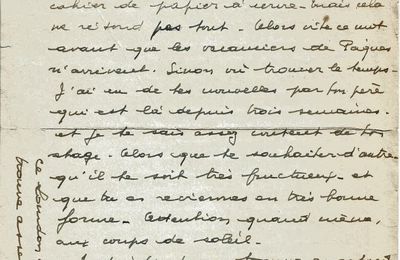 cahier de papier à lettre. Mais cela
ne résoud pas tout. Alors vite ce mot
avant que les vacanciers de Pâques
n'arrivent. Sinon où trouver le temps.
J'ai eu de tes nouvelles par ton père
qui est là depuis trois semaines.
et je te sais assez content de ton
stage. Alors que te souhaiter d'autre
qu'il te soit très fructueux. et
que tu en reviennes en très bonne
forme. Attention quand même,
aux coups de soleil.
ce London
trouve assez